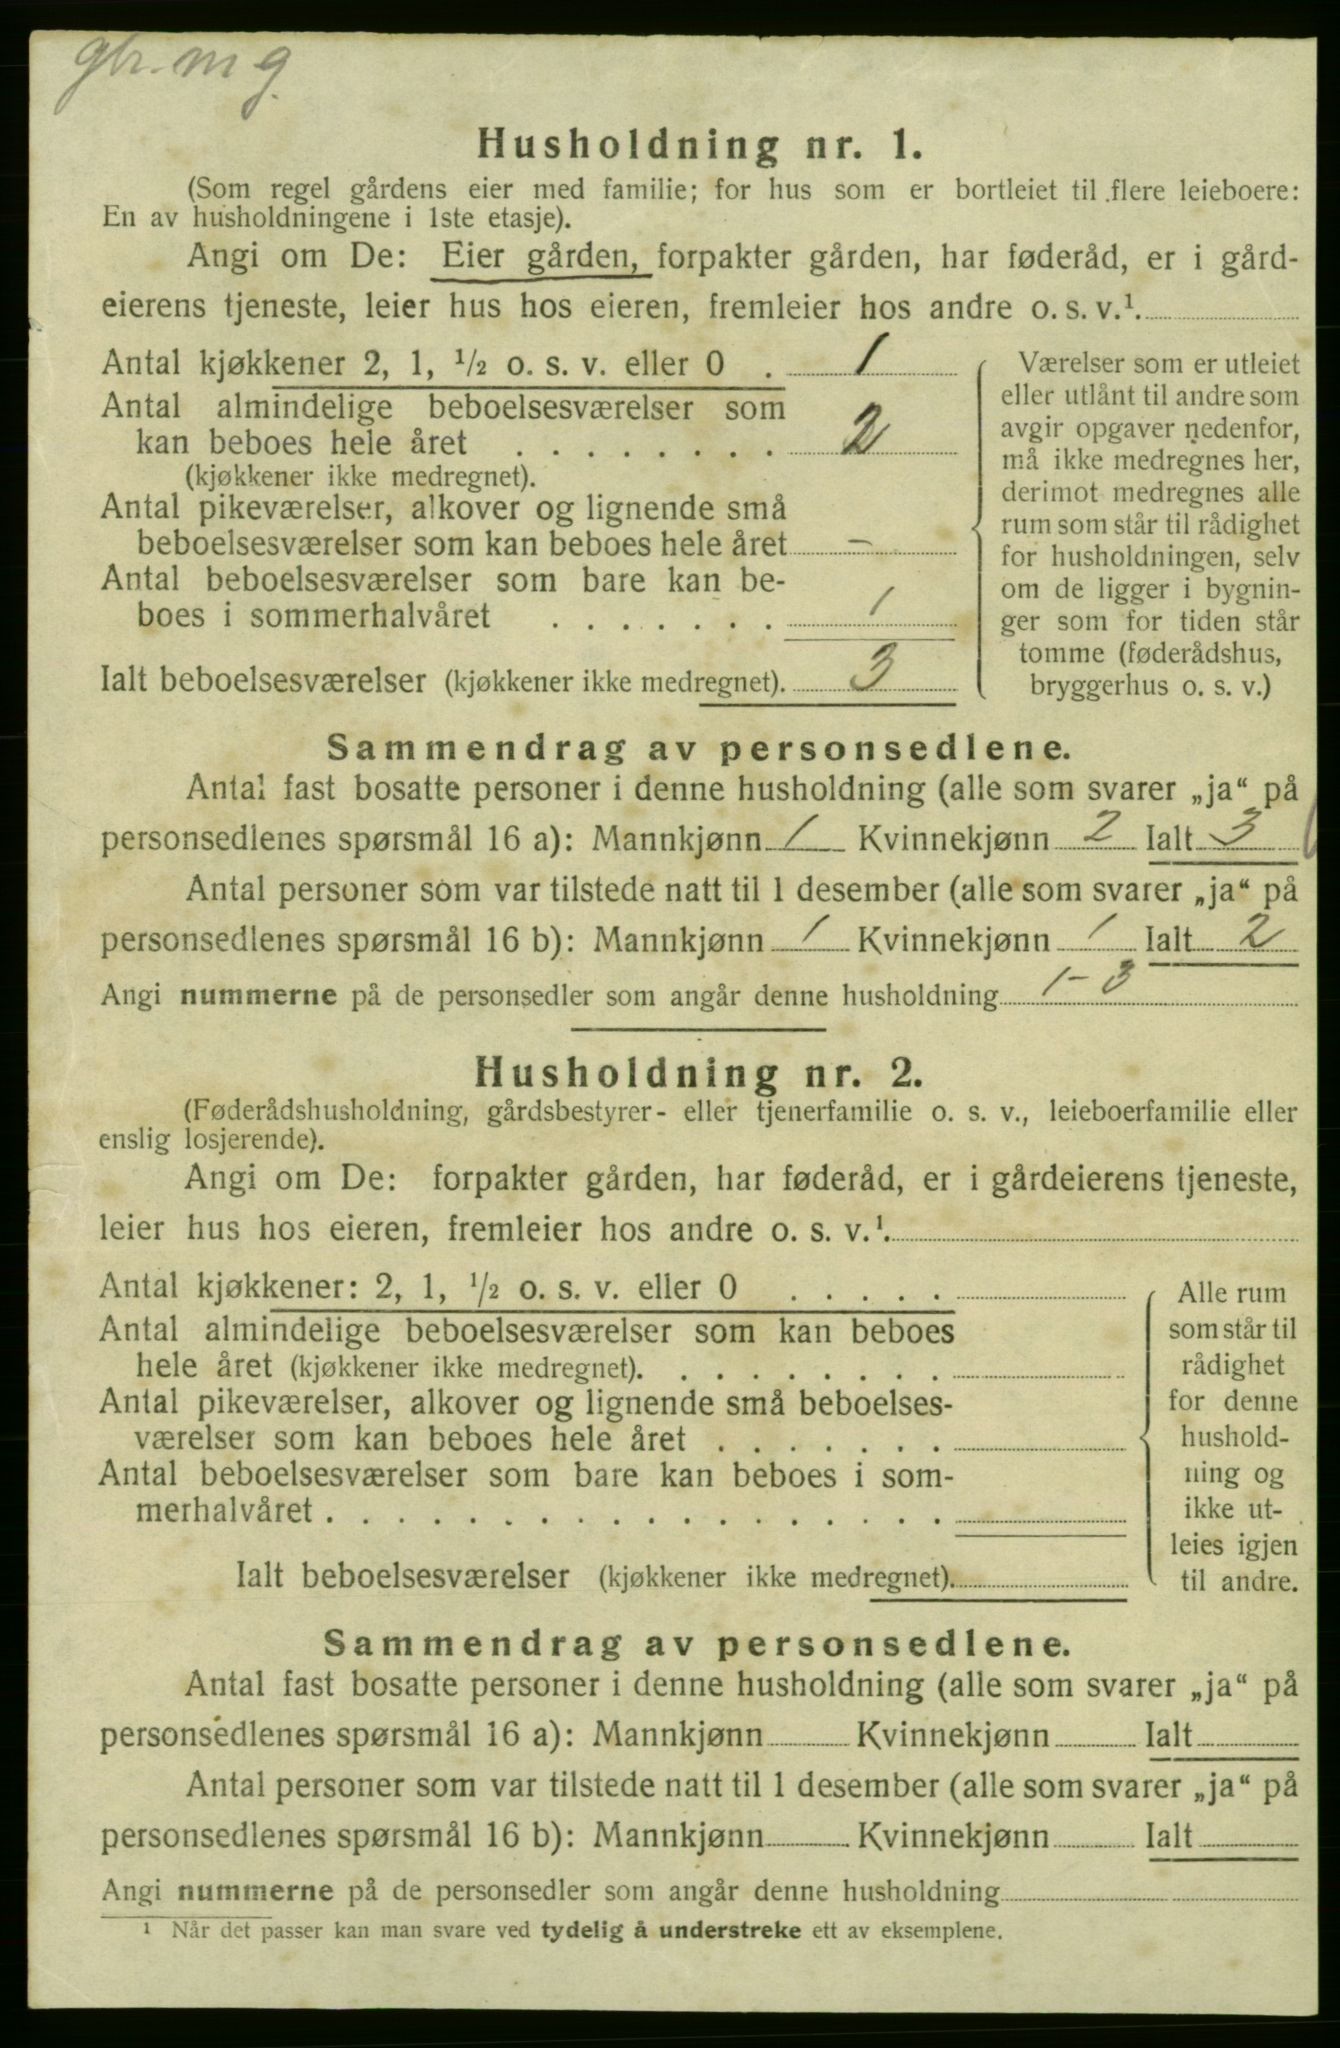 gbr. m g.
Husholdning nr. 1.
(Som regel gårdens eier med familie; for hus som er bortleiet til flere leieboere:
En av husholdningene i 1ste etasje).
Angi om De: Eier gården, forpakter gården, har føderåd, er i gård-
eierens tjeneste, leier hus hos eieren, fremleier hos andre o. s. v.¹.
Antal kjøkkener 2, 1, ½ o. s. v. eller 0 . 1
Antal almindelige beboelsesværelser som
kan beboes hele året . . . . . . . . 2
(kjøkkener ikke medregnet).
Antal pikeværelser, alkover og lignende små
beboelsesværelser som kan beboes hele året –
Antal beboelsesværelser som bare kan be-
boes i sommerhalvåret . . . . . . . 1
Ialt beboelsesværelser (kjøkkener ikke medregnet). 3
Værelser som er utleiet
eller utlånt til andre som
avgir opgaver nedenfor,
må ikke medregnes her,
derimot medregnes alle
rum som står til rådighet
for husholdningen, selv
om de ligger i bygnin-
ger som for tiden står
tomme (føderådshus,
bryggerhus o. s. v.)
Sammendrag av personsedlene.
Antal fast bosatte personer i denne husholdning (alle som svarer „ja“ på
personsedlenes spørsmål 16 a): Mannkjønn 1 Kvinnekjønn 2 Ialt 3
Antal personer som var tilstede natt til 1 desember (alle som svarer „ja“ på
personsedlenes spørsmål 16 b): Mannkjønn 1 Kvinnekjønn 1 Ialt 2
Angi nummerne på de personsedler som angår denne husholdning 1-3
Husholdning nr. 2.
(Føderådshusholdning, gårdsbestyrer- eller tjenerfamilie o. s. v., leieboerfamilie eller
enslig losjerende).
Angi om De: forpakter gården, har føderåd, er i gårdeierens tjeneste,
leier hus hos eieren, fremleier hos andre o. s. v.¹.
Antal kjøkkener: 2, 1, ½ o. s. v. eller 0 . . . . .
Antal almindelige beboelsesværelser som kan beboes
hele året (kjøkkener ikke medregnet). . . . . . . . .
Antal pikeværelser, alkover og lignende små beboelses-
værelser som kan beboes hele året . . . . . . .
Antal beboelsesværelser som bare kan beboes i som-
merhalvåret . . . . . . . . . . . . . . . . . .
Ialt beboelsesværelser (kjøkkener ikke medregnet).
Alle rum
som står til
rådighet
for denne
hushold-
ning og
ikke ut-
leies igjen
til andre.
Sammendrag av personsedlene.
Antal fast bosatte personer i denne husholdning (alle som svarer „ja“ på
personsedlenes spørsmål 16 a): Mannkjønn Kvinnekjønn Ialt
Antal personer som var tilstede natt til 1 desember (alle som svarer „ja“ på
personsedlenes spørsmål 16 b): Mannkjønn Kvinnekjønn Ialt
Angi nummerne på de personsedler som angår denne husholdning
¹ Når det passer kan man svare ved tydelig å understreke ett av eksemplene.